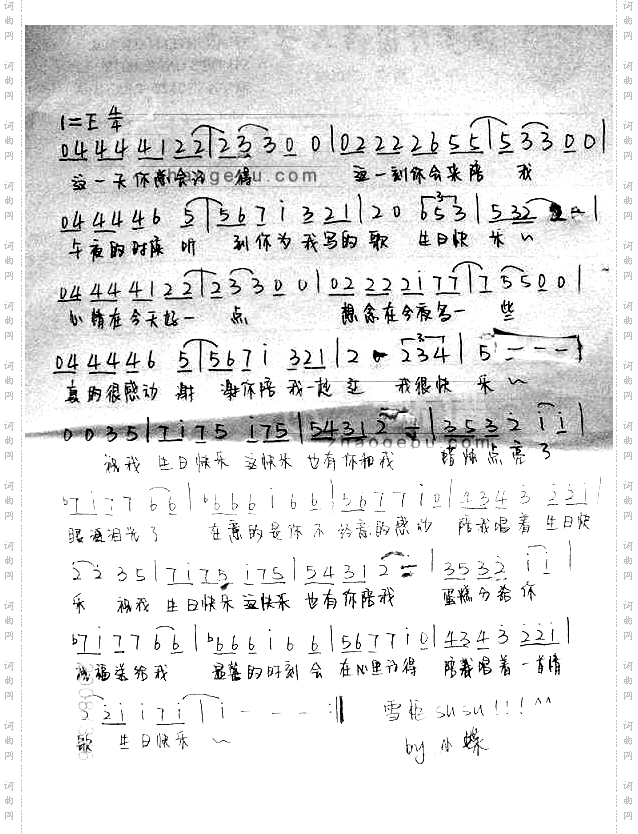 1=E 4/4
0 4 4 4 4 1 2 2 | 2 3 3 0 0 | 0 2 2 2 2 6 5 5 | 5 3 3 0 0 |
这一天你总会记得 这一刻你会来陪我
zhaogepu.com
0 4 4 4 4 6 5 | 5 6 7 i 3 2 1 | 2 0 6 5 3 | 5 3 2 - - |
午夜的时候听 到你为我写的歌 生日快乐~
0 4 4 4 4 1 2 2 | 2 3 3 0 0 | 0 2 2 2 2 i 7 7 | 7 5 5 0 0 |
心情在今天好一点 想念在今夜多一些
0 4 4 4 4 6 5 | 5 6 7 i 3 2 1 | 2 - 2 3 4 | 5 - - - |
真的很感动 谢谢你陪我一起 我很快乐~
0 0 3 5 | 7 i 7 5 i 7 5 | 5 4 3 1 2 - | 3 5 3 2 i i |
zhaogepu.com
祝我 生日快乐 这快乐 也有你和我 蜡烛点亮了
b7 i 7 7 6 6 | b6 6 6 i 6 6 | 5 6 7 7 i 0 | 4 3 4 3 2 2 i |
眼泪泪光了 在意的是你不经意的感动 陪我唱着生日快
2 2 3 5 | 7 i 7 5 i 7 5 | 5 4 3 1 2 - | 3 5 3 2 i i |
乐 祝我 生日快乐 这快乐 也有你陪我 蛋糕分给你
b7 i 7 7 6 6 | b6 6 6 i 6 6 | 5 6 7 7 i 0 | 4 3 4 3 2 2 i |
幸福送给我 温馨的时刻会在心里记得 陪我唱着一首情
2 2 i i 7 i | i - - - :||
歌 生日快乐~
雪柜 susu!!!^^
by 小蝶
词曲网